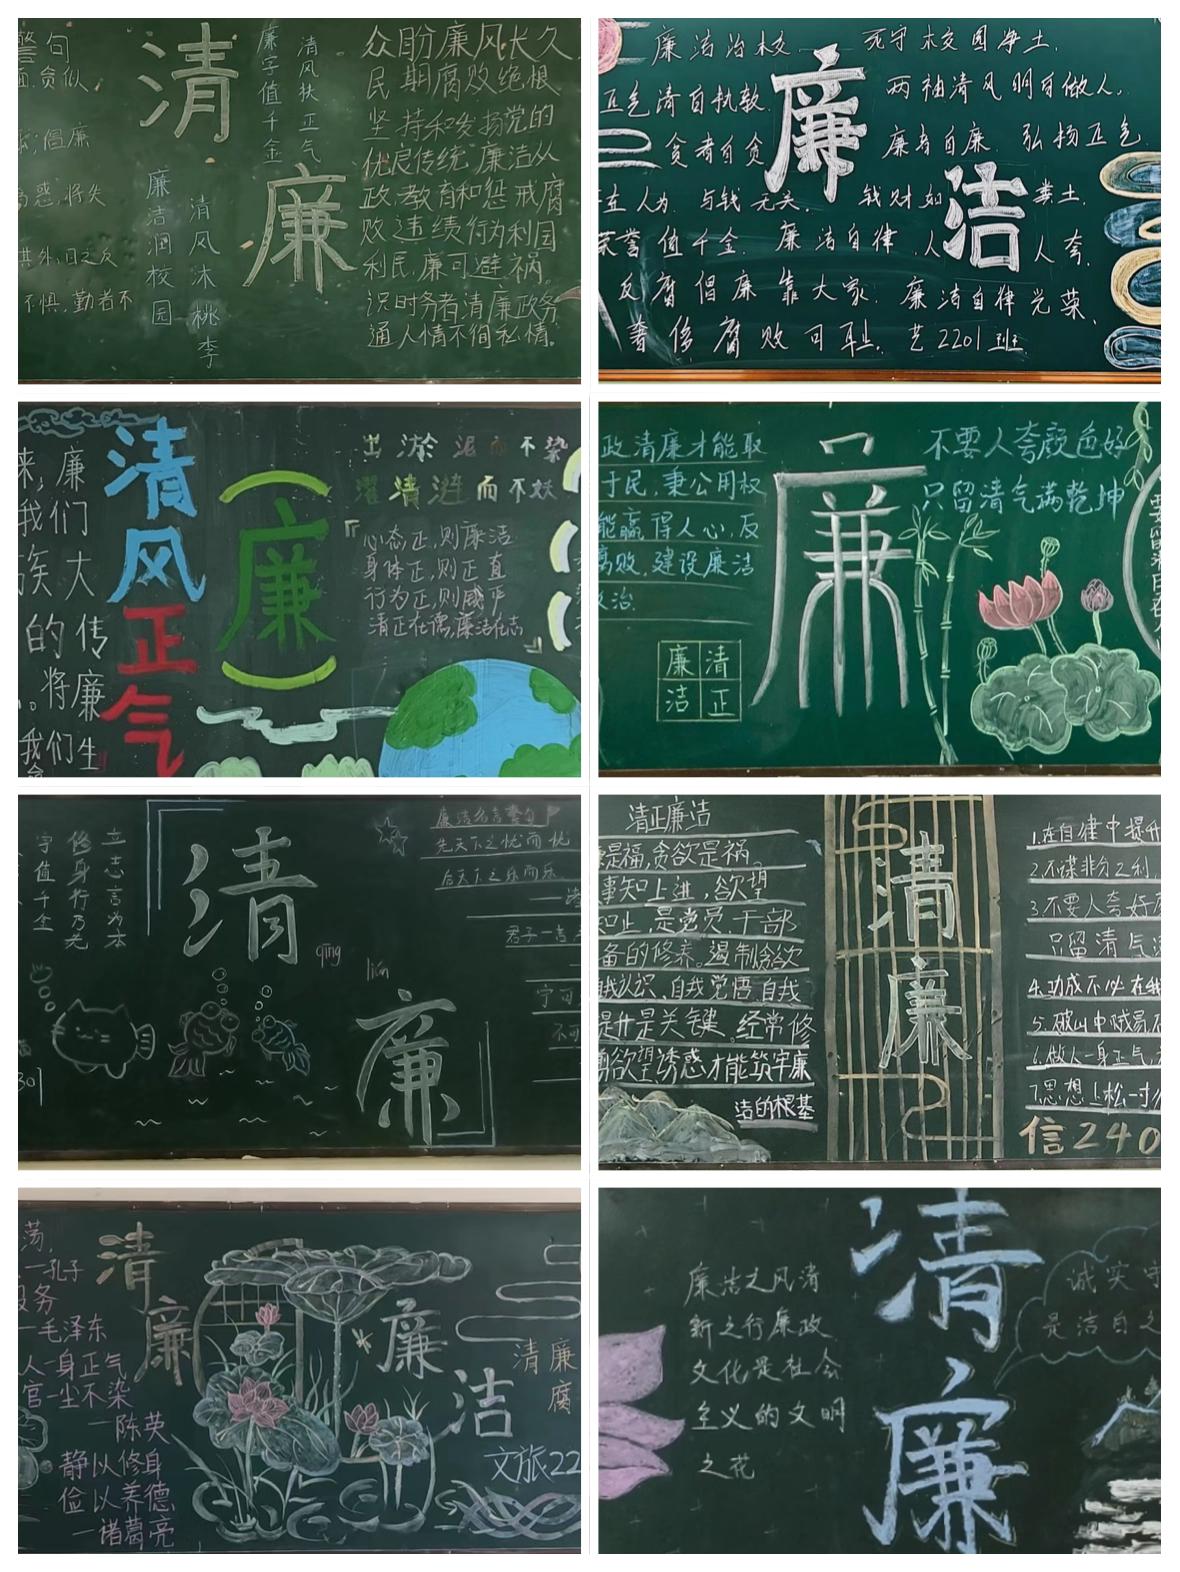 警句
面,贪似
倡廉
惑,将失
其外,日之久
不惧,勤者不
清
廉
廉洁润校园
清风沐桃李
廉字值千金
清风扶正气
众盼廉风长久,
民期腐败绝根
坚持和发扬党的
优良传统,廉洁从
政,教育和惩戒腐
败违绩行为利国
利民,廉可避祸。
识时务者清廉政务
通人情不徇私情。
廉洁治校 死守校园净土,
正气清自执教 两袖清风明白做人,
贪者自贪 廉者自廉 弘杨正气
在人为 与钱无关, 钱财如粪土,
荣誉值千金 廉洁自律,人人夸,
反腐倡廉靠大家, 廉洁自律光荣,
奢侈腐败可耻, 艺2201班
廉
洁
来,廉
我们
族大
的传
。将廉
我们生
清风正气
廉
出淤泥而不染
濯清涟而不妖
心态正,则廉洁
身体正,则正直
行为正,则威严
清正在德,廉洁在志
政清廉才能取
于民,秉公用权
能赢得人心,反
腐败,建设廉洁
政治.
廉清
洁正
廉
不要人夸颜色好
只留清气满乾坤
字值千金
修身行为先
立志言为本
清
qīng
lián
廉
廉洁名言警句
先天下之忧而忧
后天下之乐而乐
君子一言
宁可
不可
301
清正廉洁
是福,贪欲是祸。
事知上进,欲望
知止,是党员、干部
备的修养。遏制贪欲
我认识、自我觉悟、自我
提升是关键。经常修
剪欲望诱惑才能筑牢廉
洁的根基
清
廉
1.在自律中提升
2.不谋非分之利,
3.不要人夸好颜
只留清气
4.功成不必在我
5.破山中贼易,
6.做人一身正气,
7.思想上松一寸
信240
荡,
—孔子
服务
—毛泽东
人一身正气
官一尘不染
—陈英
静以修身
俭以养德
—诸葛亮
清
廉
廉
洁
清廉
腐
文旅22
廉洁之风清
新之行廉政
文化是社会
主义的文明
之花
清
廉
诚实守
是洁白之